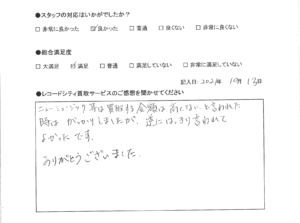 ●スタッフの対応はいかがでしたか?
□非常に良かった ☑良かった □普通 □良くない □非常に良くない
●総合満足度
□大満足 ☑満足 □普通 □満足していない □非常に満足していない
記入日:2021年 10月 13日
●レコードシティ買取サービスのご感想を聞かせてください
ニューミュージック等は買取する金額は高くないと言われた
時はがっかりしましたが、逆にはっきり言われて
よかったです。
ありがとうございました。